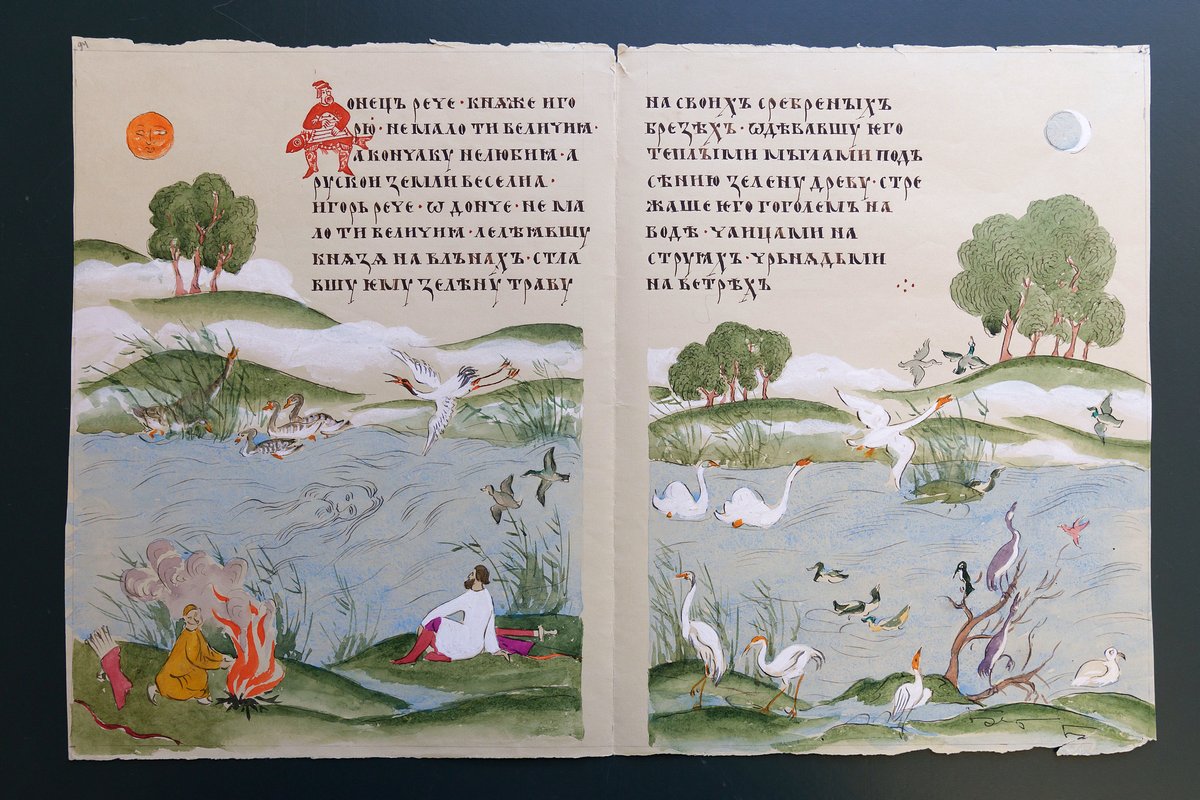 94
ДОНЕЦЪ РЕЧЕ · КНѦЖЕ ИГО
РЮ · НЕ МАЛО ТИ ВЕЛИЧИꙖ ·
А КОНЧАКУ НЕЛЮБИꙖ · А
РУСКОИ ЗЕМЛИ ВЕСЕЛИꙖ ·
ИГОРЬ РЕЧЕ · Ѡ ДОНЧЕ · НЕ МА
ЛО ТИ ВЕЛИЧИꙖ · ЛЕЛѢꙖВШУ
КНѦЗѦ НА ВЛЪНАХЪ · СТЛА
ВШУ ѤМУ ЗЕЛѢНУ ТРАВУ
НА СВОИХЪ СРЕБРЕНЫХЪ
БРЕЗѢХЪ · ѠДѢВАВШУ ѤГО
ТЕПЛЫМИ МЪГЛАМИ ПОДЪ
СѢНИЮ ЗЕЛЕНУ ДРЕВУ · СТРЕ
ЖАШЕ ѤГО ГОГОЛЕМЪ НА
ВОДѢ · ЧАИЦАМИ НА
СТРУꙖХЪ · ЧРЬНѦДЬМИ
НА ВЕТРѢХЪ